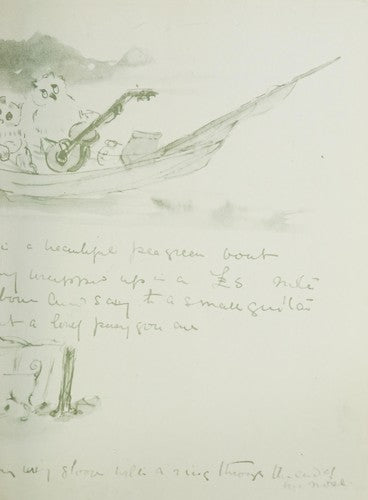 a beautiful pea green boat
wrapped up in a £5 note
and sang to a small guitar
a lovely pussy you are
with a ring through the end of
his nose